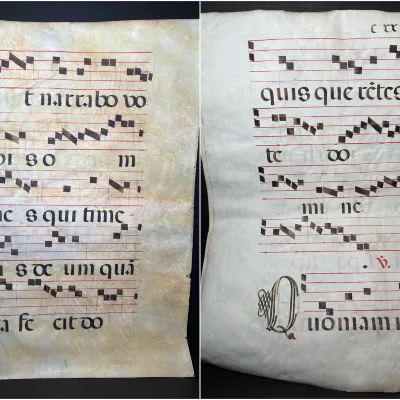 t narrabo vo
bi s o m
ne s qui time
s de um quā
fe cit do
c xx
quis que rētes
te do
mi ne
℣.
Quoniam